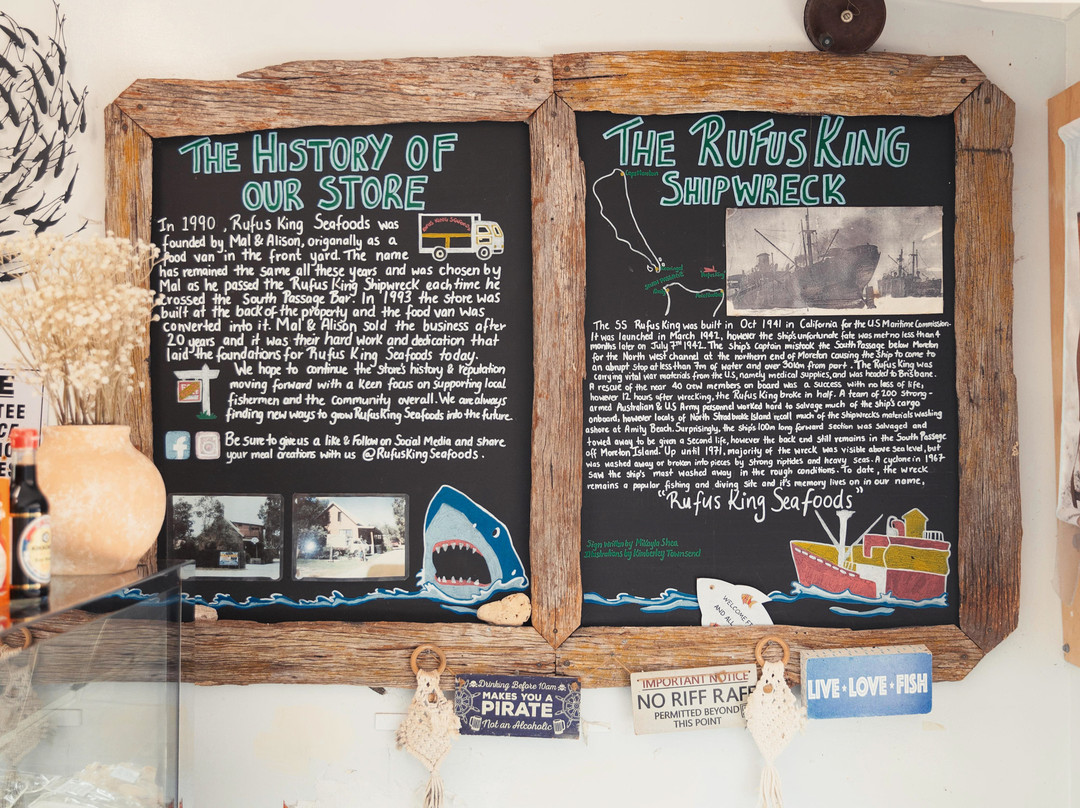 THE HISTORY OF
OUR STORE
In 1990, Rufus King Seafoods was
founded by Mal & Alison, origanally as a
food van in the front yard. The name
has remained the same all these years and was chosen by
Mal as he passed the Rufus King Shipwreck each time he
crossed the South Passage Bar. In 1993 the store was
built at the back of the property and the food van was
converted into it. Mal & Alison sold the business after
20 years and it was their hard work and dedication that
laid the foundations for Rufus King Seafoods today.
We hope to continue the store's history & reputation
moving forward with a keen focus on supporting local
fishermen and the community overall. We are always
finding new ways to grow Rufus King Seafoods into the future.
Be sure to give us a like & Follow on Social Media and share
your meal creations with us @RufusKingSeafoods.
THE RUFUS KING
SHIPWRECK
The SS Rufus King was built in Oct 1941 in California for the U.S Maritime Commission.
It was launched in March 1942, however the ship's unfortunate fate was met no less than 4
months later on July 7th 1942. The Ship's captain mistook the South Passage below Moreton
for the North west channel at the northern end of Moreton causing the Ship to come to
an abrupt stop at less than 7m of water and over 30km from port. The Rufus King was
carrying vital war materials from the U.S, namely medical supplies, and was headed to Brisbane.
A rescue of the near 40 crew members on board was a success with no loss of life,
however 12 hours after wrecking, the Rufus King broke in half. A team of 200 strong-
armed Australian & U.S Army personnel worked hard to salvage much of the ship's cargo
onboard, however locals of North Stradbroke Island recall much of the Shipwrecks materials washing
ashore at Amity Beach. Surprisingly, the ship's 100m long forward section was salvaged and
towed away to be given a second life, however the back end still remains in the South Passage
off Moreton Island. Up until 1971, majority of the wreck was visible above sea level, but
was washed away or broken into pieces by strong riptides and heavy seas. A cyclone in 1967
saw the ship's mast washed away in the rough conditions. To date, the wreck
remains a popular fishing and diving site and it's memory lives on in our name,
"Rufus King Seafoods"
Sign written by Mikayla Shea
Illustrations by Kimberley Townsend
WELCOME
AND ALL
Drinking Before 10am
MAKES YOU A
PIRATE
Not an Alcoholic
IMPORTANT NOTICE
NO RIFF RAFF
PERMITTED BEYOND
THIS POINT
LIVE LOVE FISH